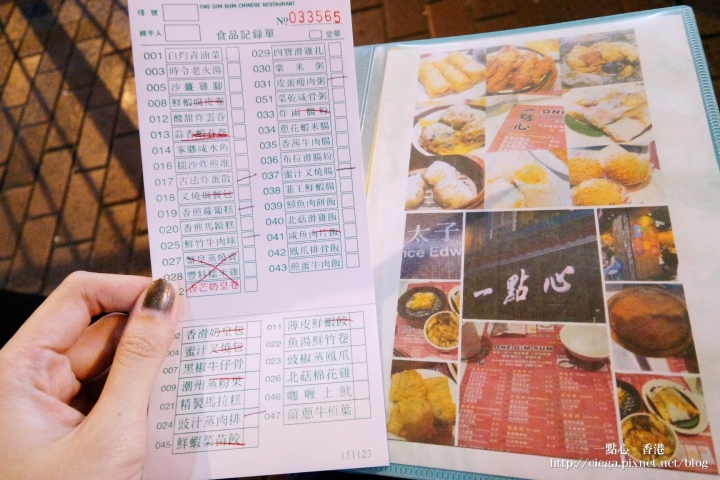 ONE DIM SUM CHINESE RESTAURANT
檯號
№ 033565
經手人
食品記錄單
堂單
001 白灼青油菜
003 時令老火湯
005 沙薑雞腳
008 鮮蝦腐皮卷
012 酸甜炸雲吞
013 蒜香蝦春卷
014 家鄉咸水角
016 擂沙炸煎堆
017 古法炸蛋散
018 叉燒焗餐包
019 香煎蘿蔔糕
020 香煎馬蹄糕
025 鮮竹牛肉球
027 蟹皇蒸燒賣
028
香芒奶皇卷
029 四寶滑雞扎
030 粟米粥
031 皮蛋瘦肉粥
051 菜乾咸骨粥
033 炸兩腸粉
034 蔥花蝦米腸
035 香茜牛肉腸
036 布拉滑腸粉
037 蜜汁叉燒腸
038 韭王鮮蝦腸
039 鯪魚肉餅飯
040 北菇滑雞飯
041 咸魚肉片飯
042 鳳爪排骨飯
043 煎蛋牛肉飯
002 香滑奶皇包
004 蜜汁叉燒包
007 黑椒牛仔骨
009 潮州蒸粉菓
021 精製馬拉糕
024 豉汁蒸肉排
045 鮮蝦菜苗餃
011 薄皮鮮蝦餃
022 魚湯鮮竹卷
023 豉椒蒸鳳爪
026 北菇棉花雞
046 咖喱土魷
047 薑蔥牛栢葉
151123
一點心
太子
nce Edw
一點心
ONE DIM SUM
一點心 香港
http://cicga.pixnet.net/blog